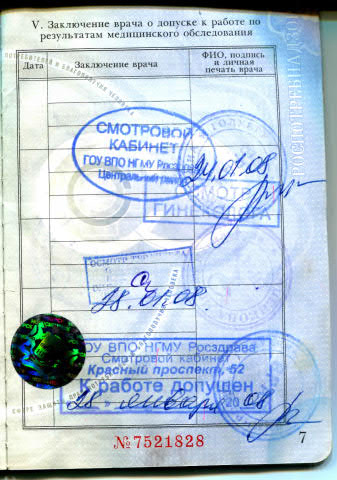 V. Заключение врача о допуске к работе по
результатам медицинского обследования
Дата
Заключение врача
ФИО, подпись
и личная
печать врача
РОСПОТРЕБНАДЗО
СМОТРОВОЙ
КАБИНЕТ
ГОУ ВПО НГМУ Росздрав
Центральный район
24.01.08
ОСМОТР
ГИНЕКОЛОГА
28.01.08.
ГОУ ВПО НГМУ Росздрава
Смотровой кабинет
Красный проспект, 52
К работе допущен
"28" января 2008
№7521828
7